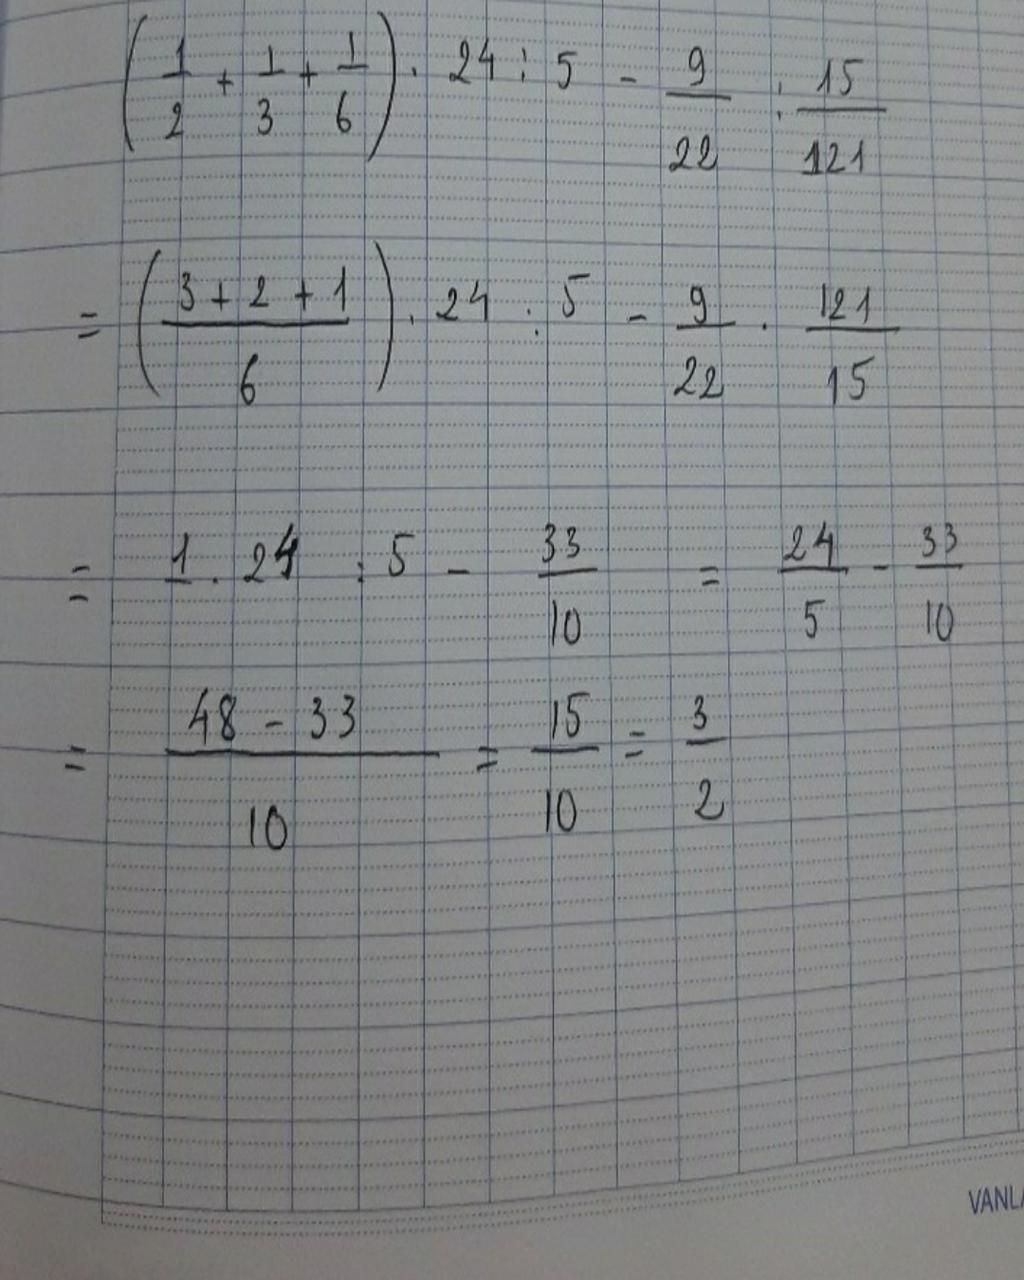 (1/2 + 1/3 + 1/6) . 24 : 5 - 9/22 : 15/121
= ((3 + 2 + 1)/6) . 24 : 5 - 9/22 . 121/15
= 1 . 24 : 5 - 33/10 = 24/5 - 33/10
= (48 - 33)/10 = 15/10 = 3/2